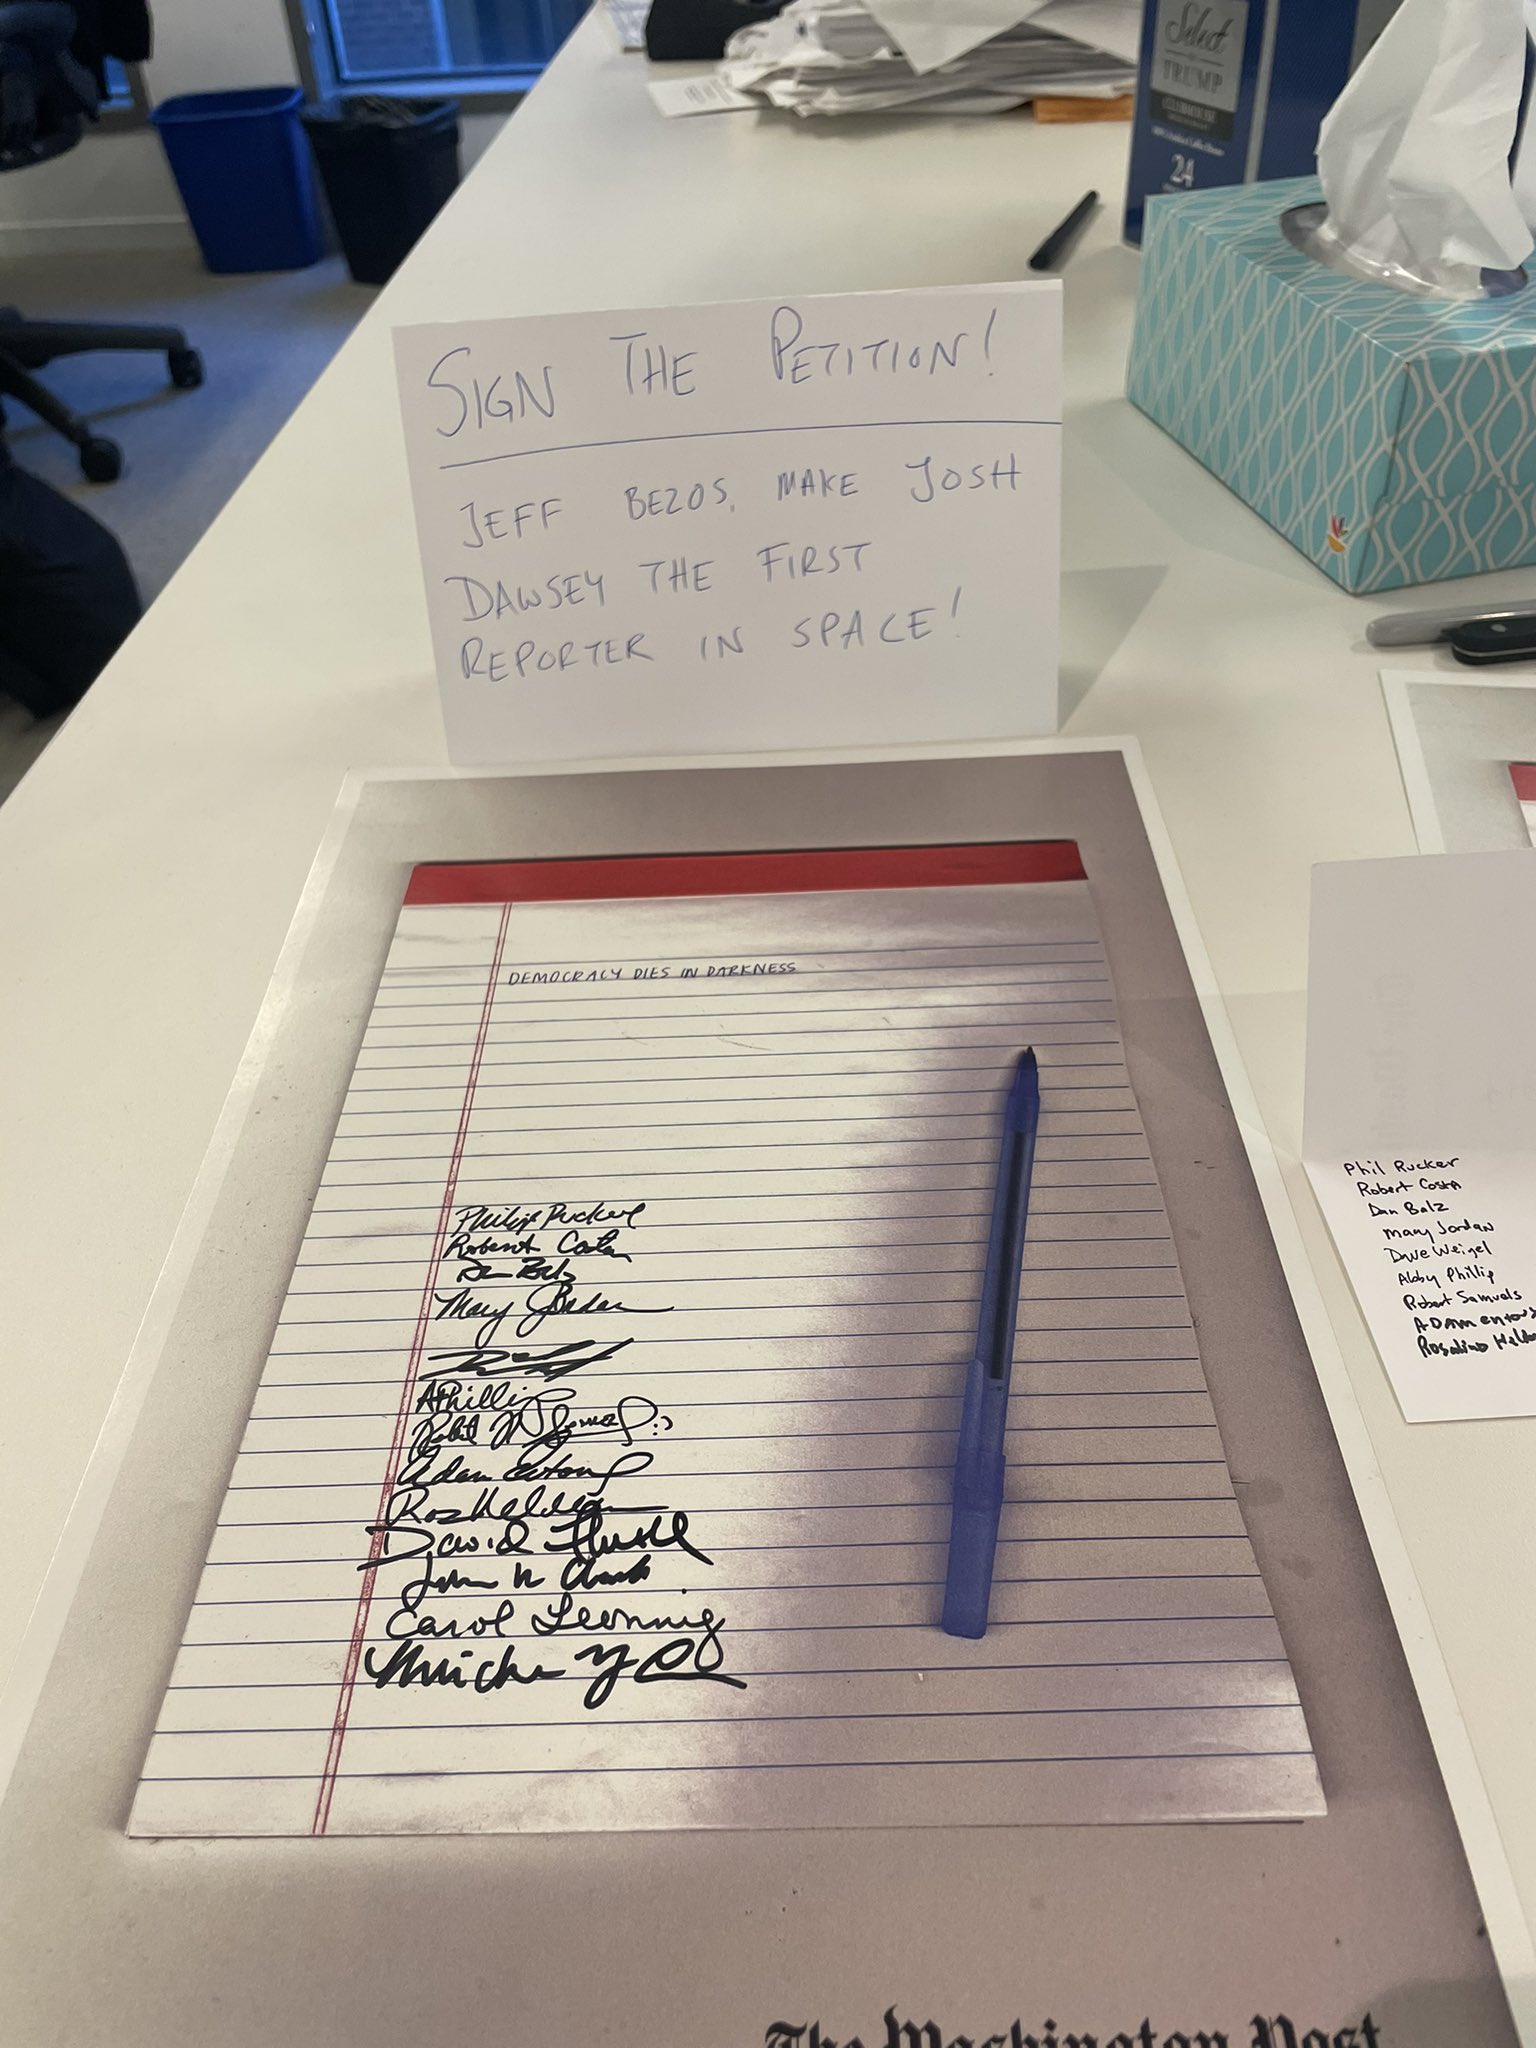 Select
TRUMP
CLUBHOUSE
24
SIGN THE PETITION!
JEFF BEZOS, MAKE JOSH
DAWSEY THE FIRST
REPORTER IN SPACE!
DEMOCRACY DIES IN DARKNESS
Philip Rucker
Robert Costa
Dan Balz
Mary Jordan
APhillip
Robert :)
Adam Entous
Roz Helderman
David
John
Carol Leonnig
Phil Rucker
Robert Costa
Dan Balz
Mary Jordan
Dave Weigel
Abby Phillip
Robert Samuels
ADAM entous
Rosalind Held
The Washington Post